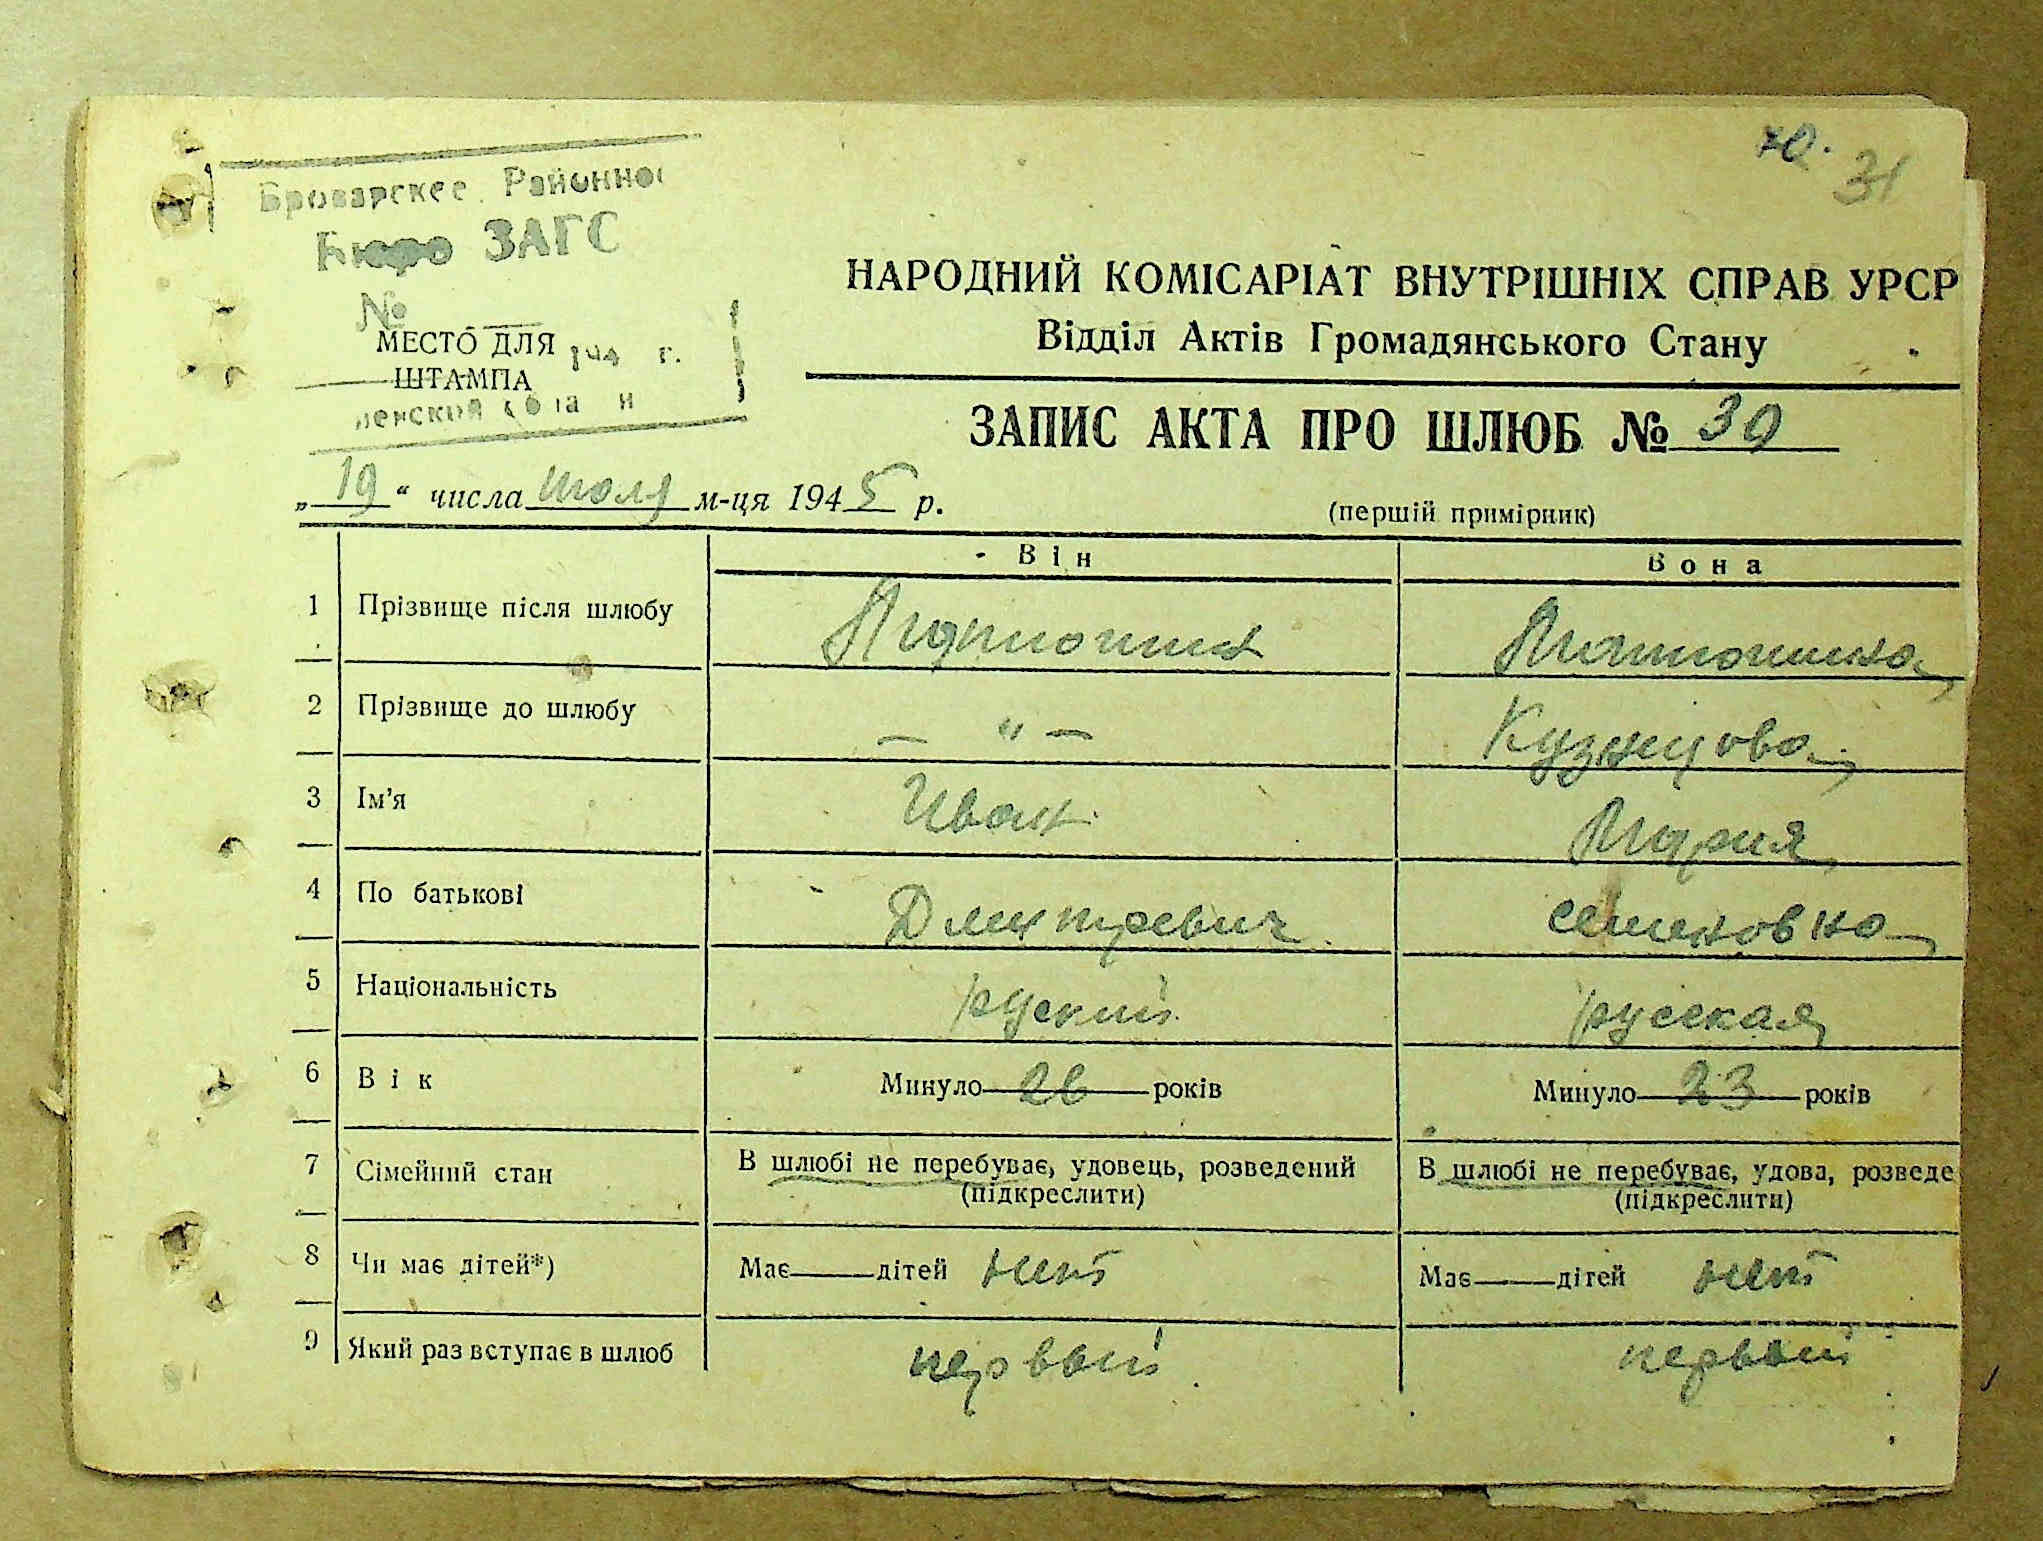 31
Броварское Районное
Бюро ЗАГС
№
НАРОДНИЙ КОМІСАРІАТ ВНУТРІШНІХ СПРАВ УРСР
Відділ Актів Громадянського Стану
МЕСТО ДЛЯ 194 г.
ШТАМПА
ЗАПИС АКТА ПРО ШЛЮБ № 39
„19“ числа июля м-ця 1945 р.
(першій примірник)
Він Вона
1 Прізвище після шлюбу
2 Прізвище до шлюбу — „ — Кузнецова
3 Ім'я Иван Мария
4 По батькові Дмитревич семеновна
5 Національність руский русская
6 Вік Минуло 26 років Минуло 23 років
7 Сімейний стан В шлюбі не перебуває, удовець, розведений В шлюбі не перебуває, удова, розведе
(підкреслити) (підкреслити)
8 Чи має дітей*) Має дітей нет Має дітей нет
9 Який раз вступає в шлюб первый первый